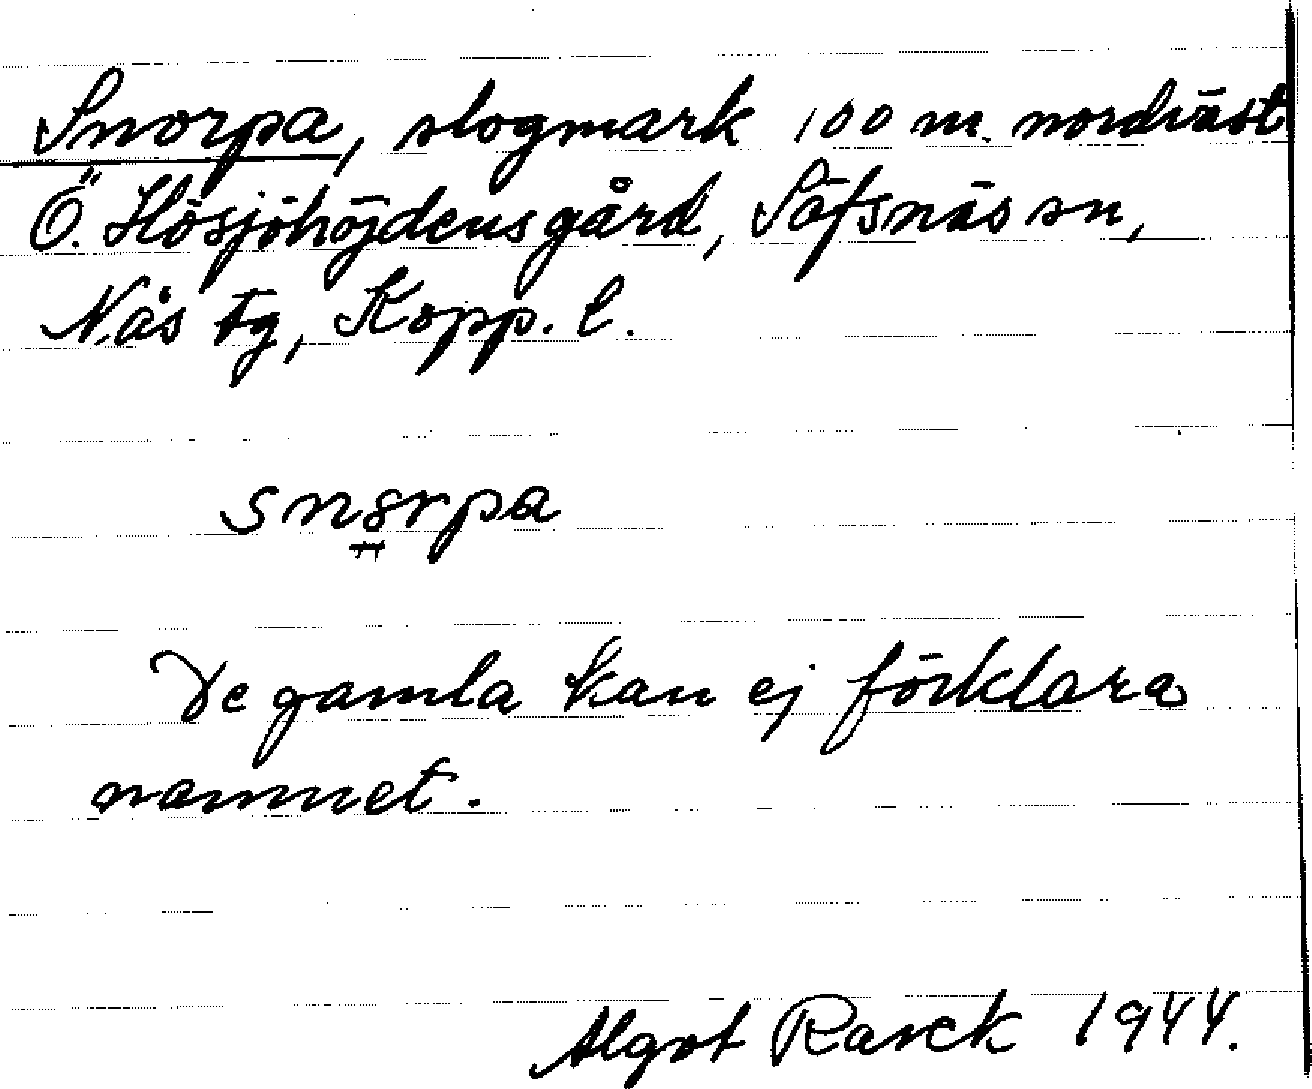 Snorpa, slogmark 100 m. nordväst
Ö. Hösjöhöjdens gård, Säfsnäs sn,
Nås tg, Kopp. l.
snorpa
De gamla kan ej förklara
namnet.
Algot 1944.